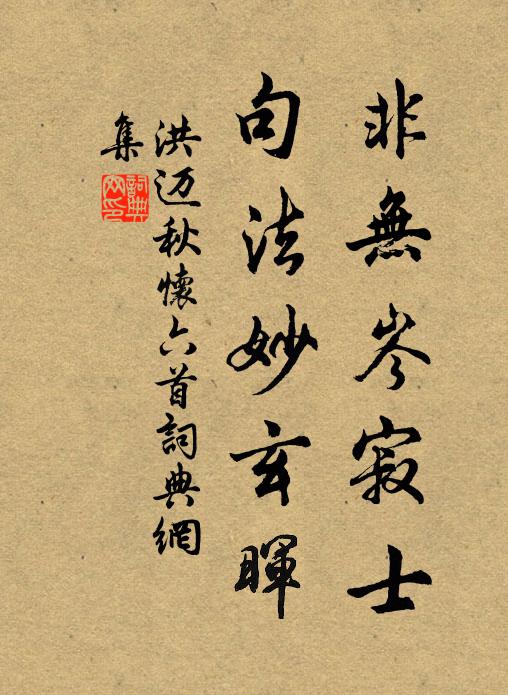 非無岑寂士
句法妙玄暉
洪迈秋懷六首詞典網
集
詞典网印